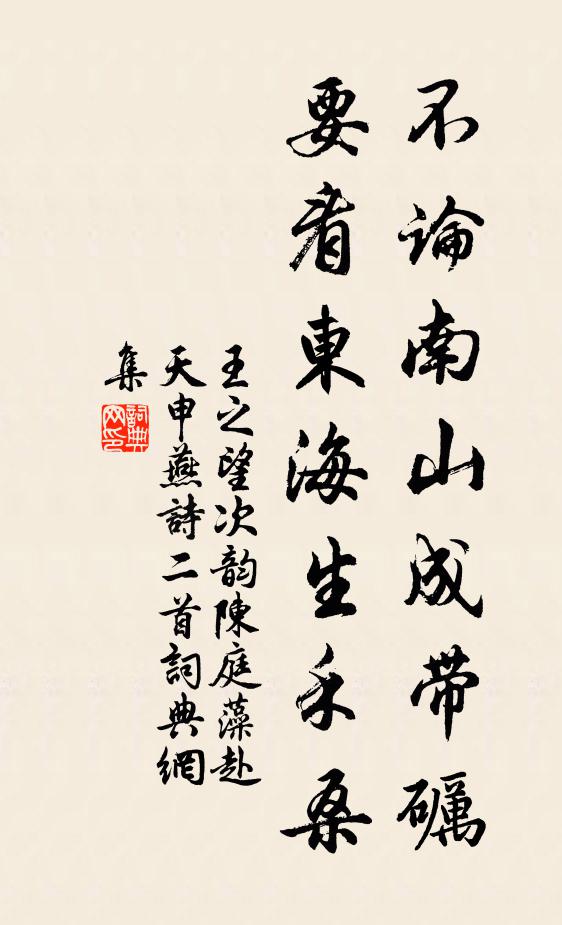 不論南山成带礪
要看東海生禾桑
王之望次韵陳庭藻赴
天申燕詩二首詞典網
集
詞典网印